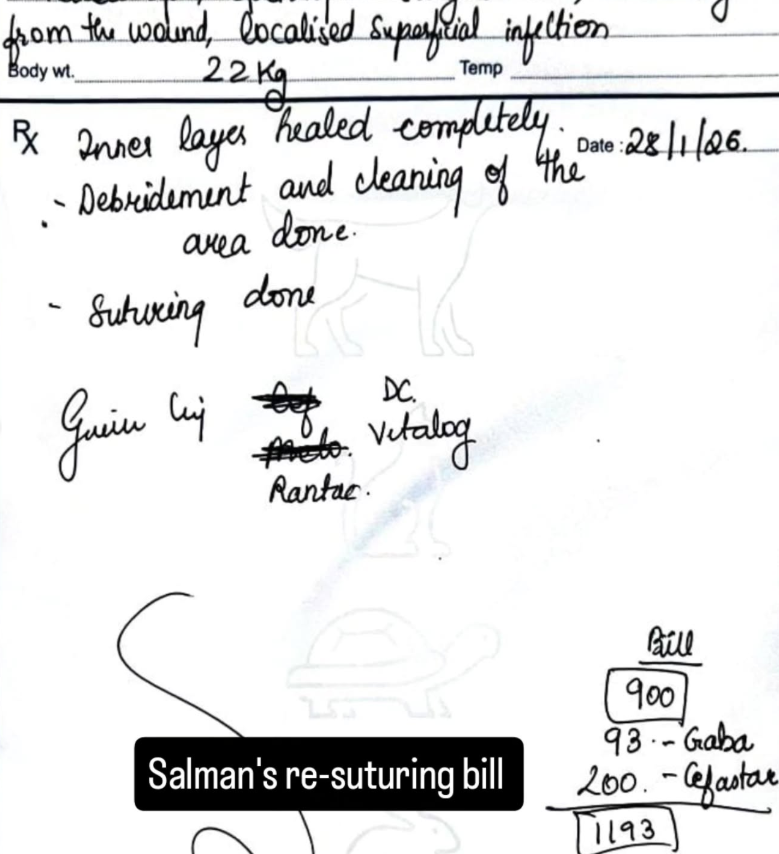 from the wound, localised superficial infection
Body wt. 22 Kg Temp
Rx Inner layer healed completely.
Date : 28/1/26.
- Debridement and cleaning of the
area done.
- Suturing done
DC.
Vetalog
Rantac.
Bill
900
93 - Gaba
200. - Cefastar
1193
Salman's re-suturing bill